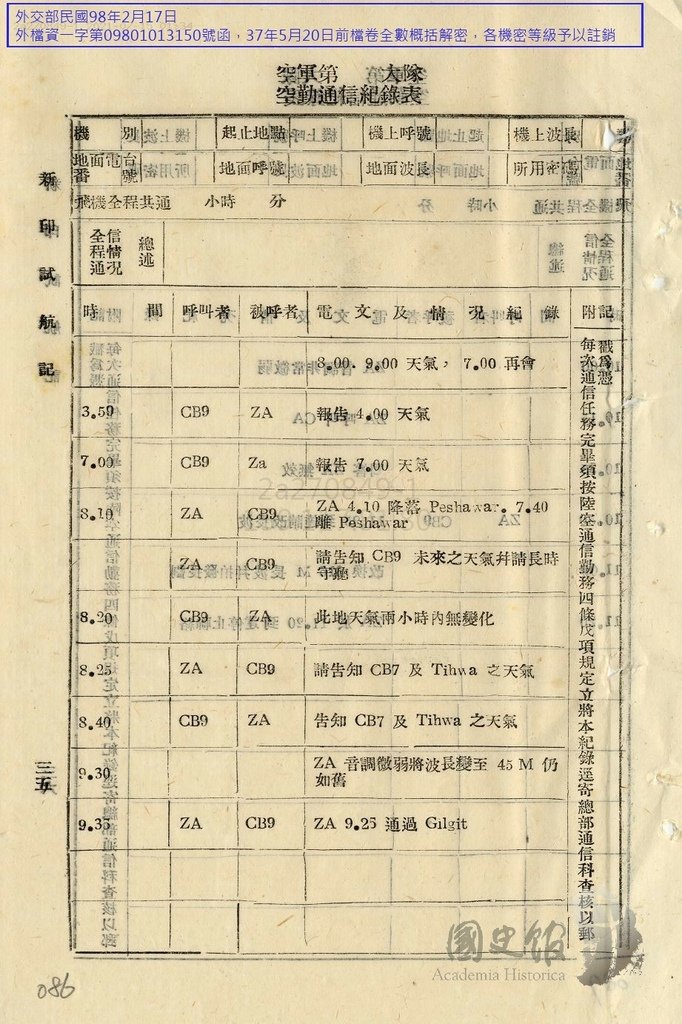 外交部民國98年2月17日
外檔資一字第09801013150號函，37年5月20日前檔卷全數概括解密，各機密等級予以註銷
空軍第 大隊
空勤通信紀錄表
機 別 起止地點 機上呼號 機上波長
地面電台番號 地面呼號 地面波長 所用密電
飛機全程共通 小時 分
全程通信情況 總述
時 間 呼叫者 被呼者 電文及情況紀錄 附記
8.00. 9.00 天氣， 7.00 再會
3.59 CB9 ZA 報告 4.00 天氣
7.00 CB9 Za 報告 7.00 天氣
8.10 ZA CB9 ZA 4.10 降落 Peshawar. 7.40
離 Peshawar
ZA CB9 請告知 CB9 未來之天氣幷請長時
守聽
8.20 CB9 ZA 此地天氣兩小時內無變化
8.25 ZA CB9 請告知 CB7 及 Tihwa 之天氣
8.40 CB9 ZA 告知 CB7 及 Tihwa 之天氣
9.30 ZA 音調微弱將波長變至 45 M 仍
如舊
9.35 ZA CB9 ZA 9.25 通過 Gilgit
每次通信任務完畢須按陸空通信勤務四條戊項規定立將本紀錄逕寄總部通信科查核以郵
戳爲憑
新印試航記
三五
086
國史館
Academia Historica